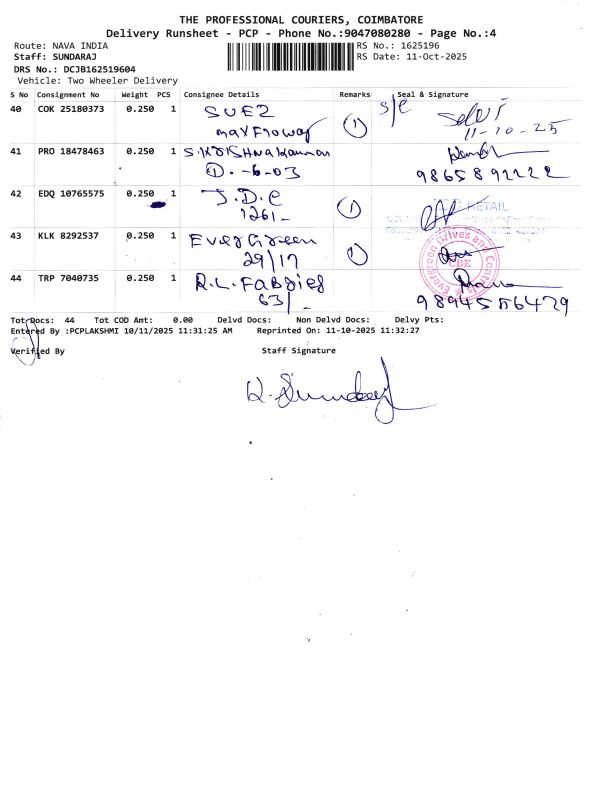 THE PROFESSIONAL COURIERS, COIMBATORE
Delivery Runsheet - PCP - Phone No.:9047080280 - Page No.:4
Route: NAVA INDIA RS No.: 1625196
Staff: SUNDARAJ RS Date: 11-Oct-2025
DRS No.: DCJB162519604
Vehicle: Two Wheeler Delivery
S No Consignment No Weight PCS Consignee Details Remarks Seal & Signature
40 COK 25180373 0.250 1 SUEZ 1 S/C
11-10-25
41 PRO 18478463 0.250 1
1.-6-03 9865892222
42 EDQ 10765575 0.250 1 J.D.C 1 RETAIL
1261-
43 KLK 8292537 0.250 1 EverGreen 1 Evergreen Drives and Controls CBE
29/17
44 TRP 7040735 0.250 1 R.L. FABrics
63/-
Tot Docs: 44 Tot COD Amt: 0.00 Delvd Docs: Non Delvd Docs: Delvy Pts:
Entered By :PCPLAKSHMI 10/11/2025 11:31:25 AM Reprinted On: 11-10-2025 11:32:27
Verified By Staff Signature